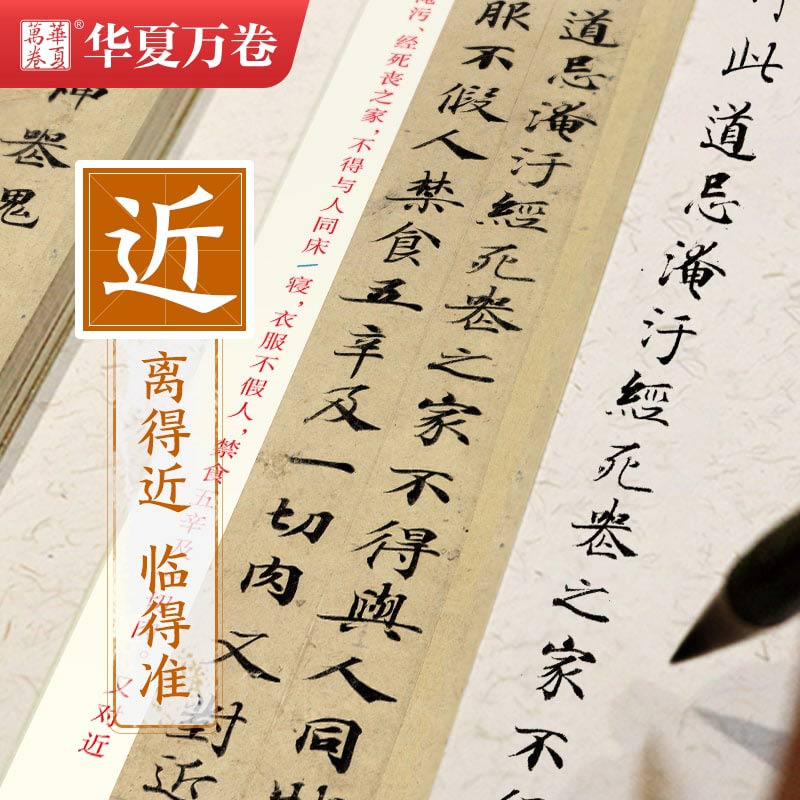 華夏
萬卷
® 华夏万卷
此道忌淹汙經死喪之家不
道忌淹汙經死喪之家不得與人同
服不假人禁食五辛及一切肉又對近
污、经死丧之家,不得与人同床一寝,衣服不假人,禁食五辛及
又对近
器鬼
近
离得近 临得准